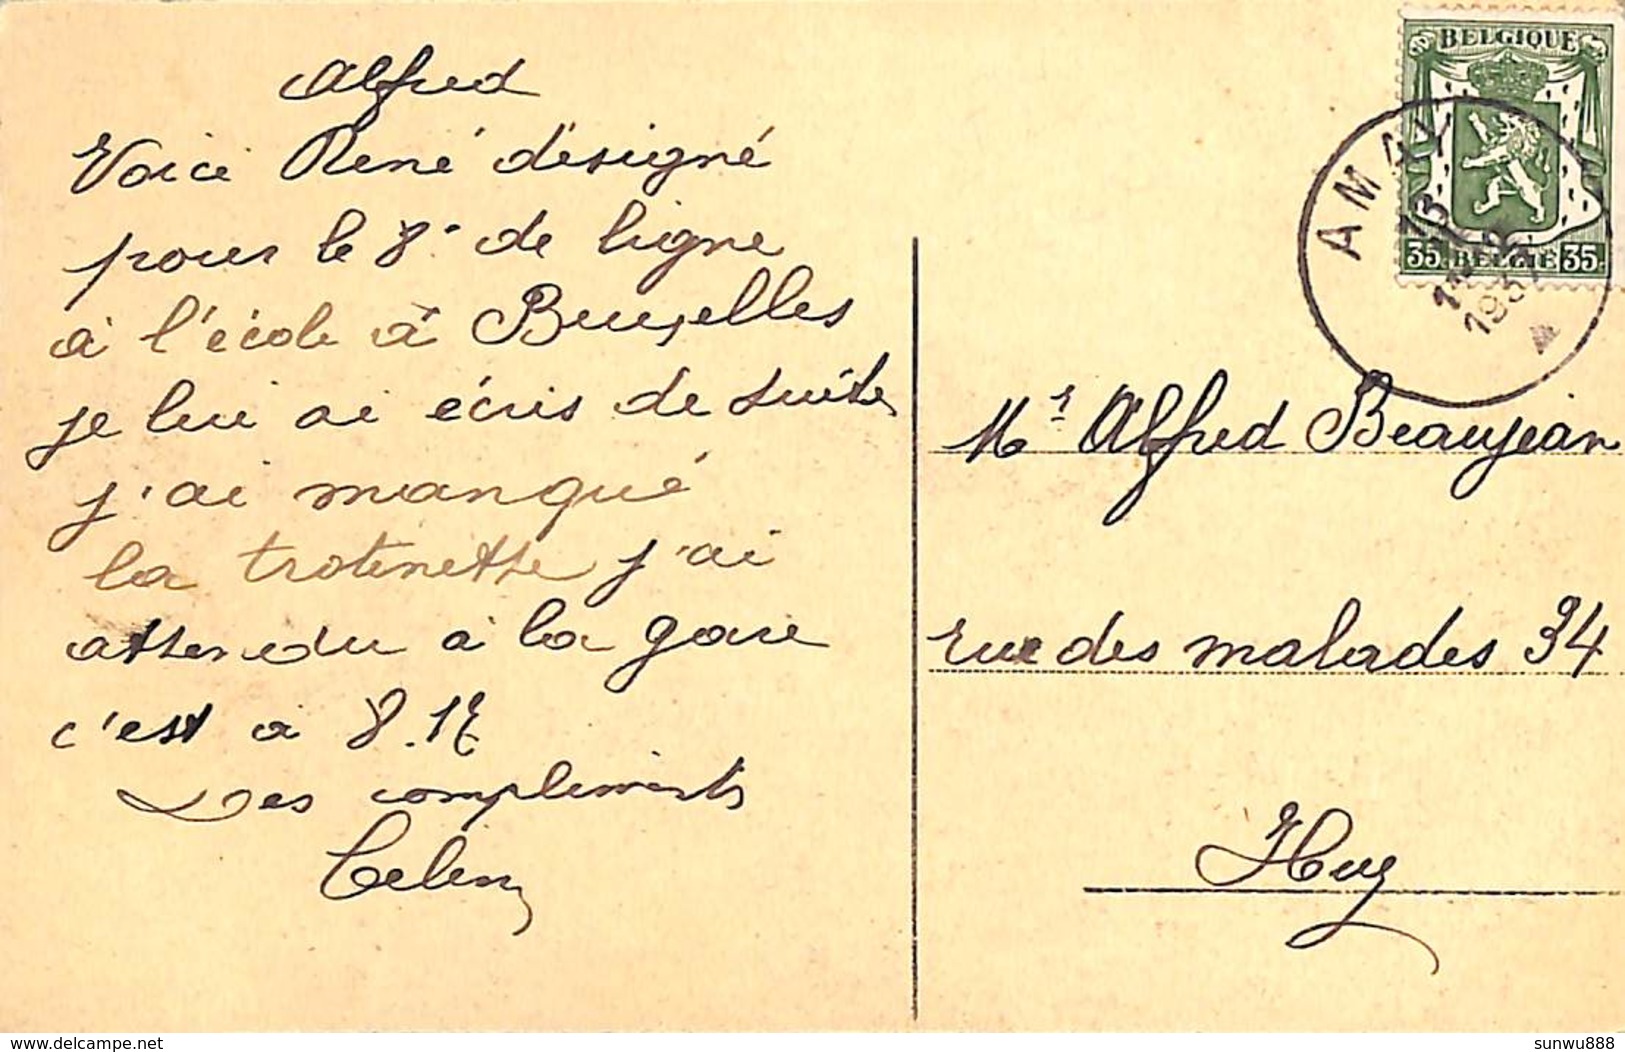 Alfred
Voici René désigné
pour le 8e de ligne
à l'école à Bruxelles
je lui ai écris de suite
j'ai manqué
la trotinette j'ai
attendu à la gare
c'est à 8.17
Les compliments
BELGIQUE
35 BELGIE 35
AMAY
13
193
Mr Alfred Beaujean
rue des malades 34
Huy
delcampe.net
sunwu888